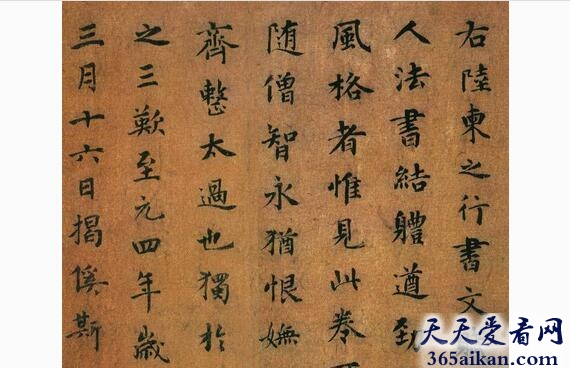 右陸柬之行書文
人法書結體遒勁
風格者惟見此卷
随僧智永猶恨嫵
齊整太過也獨於
之三歎至元四年歲
三月十六日揭傒斯
天天爱看网
365aikan.com